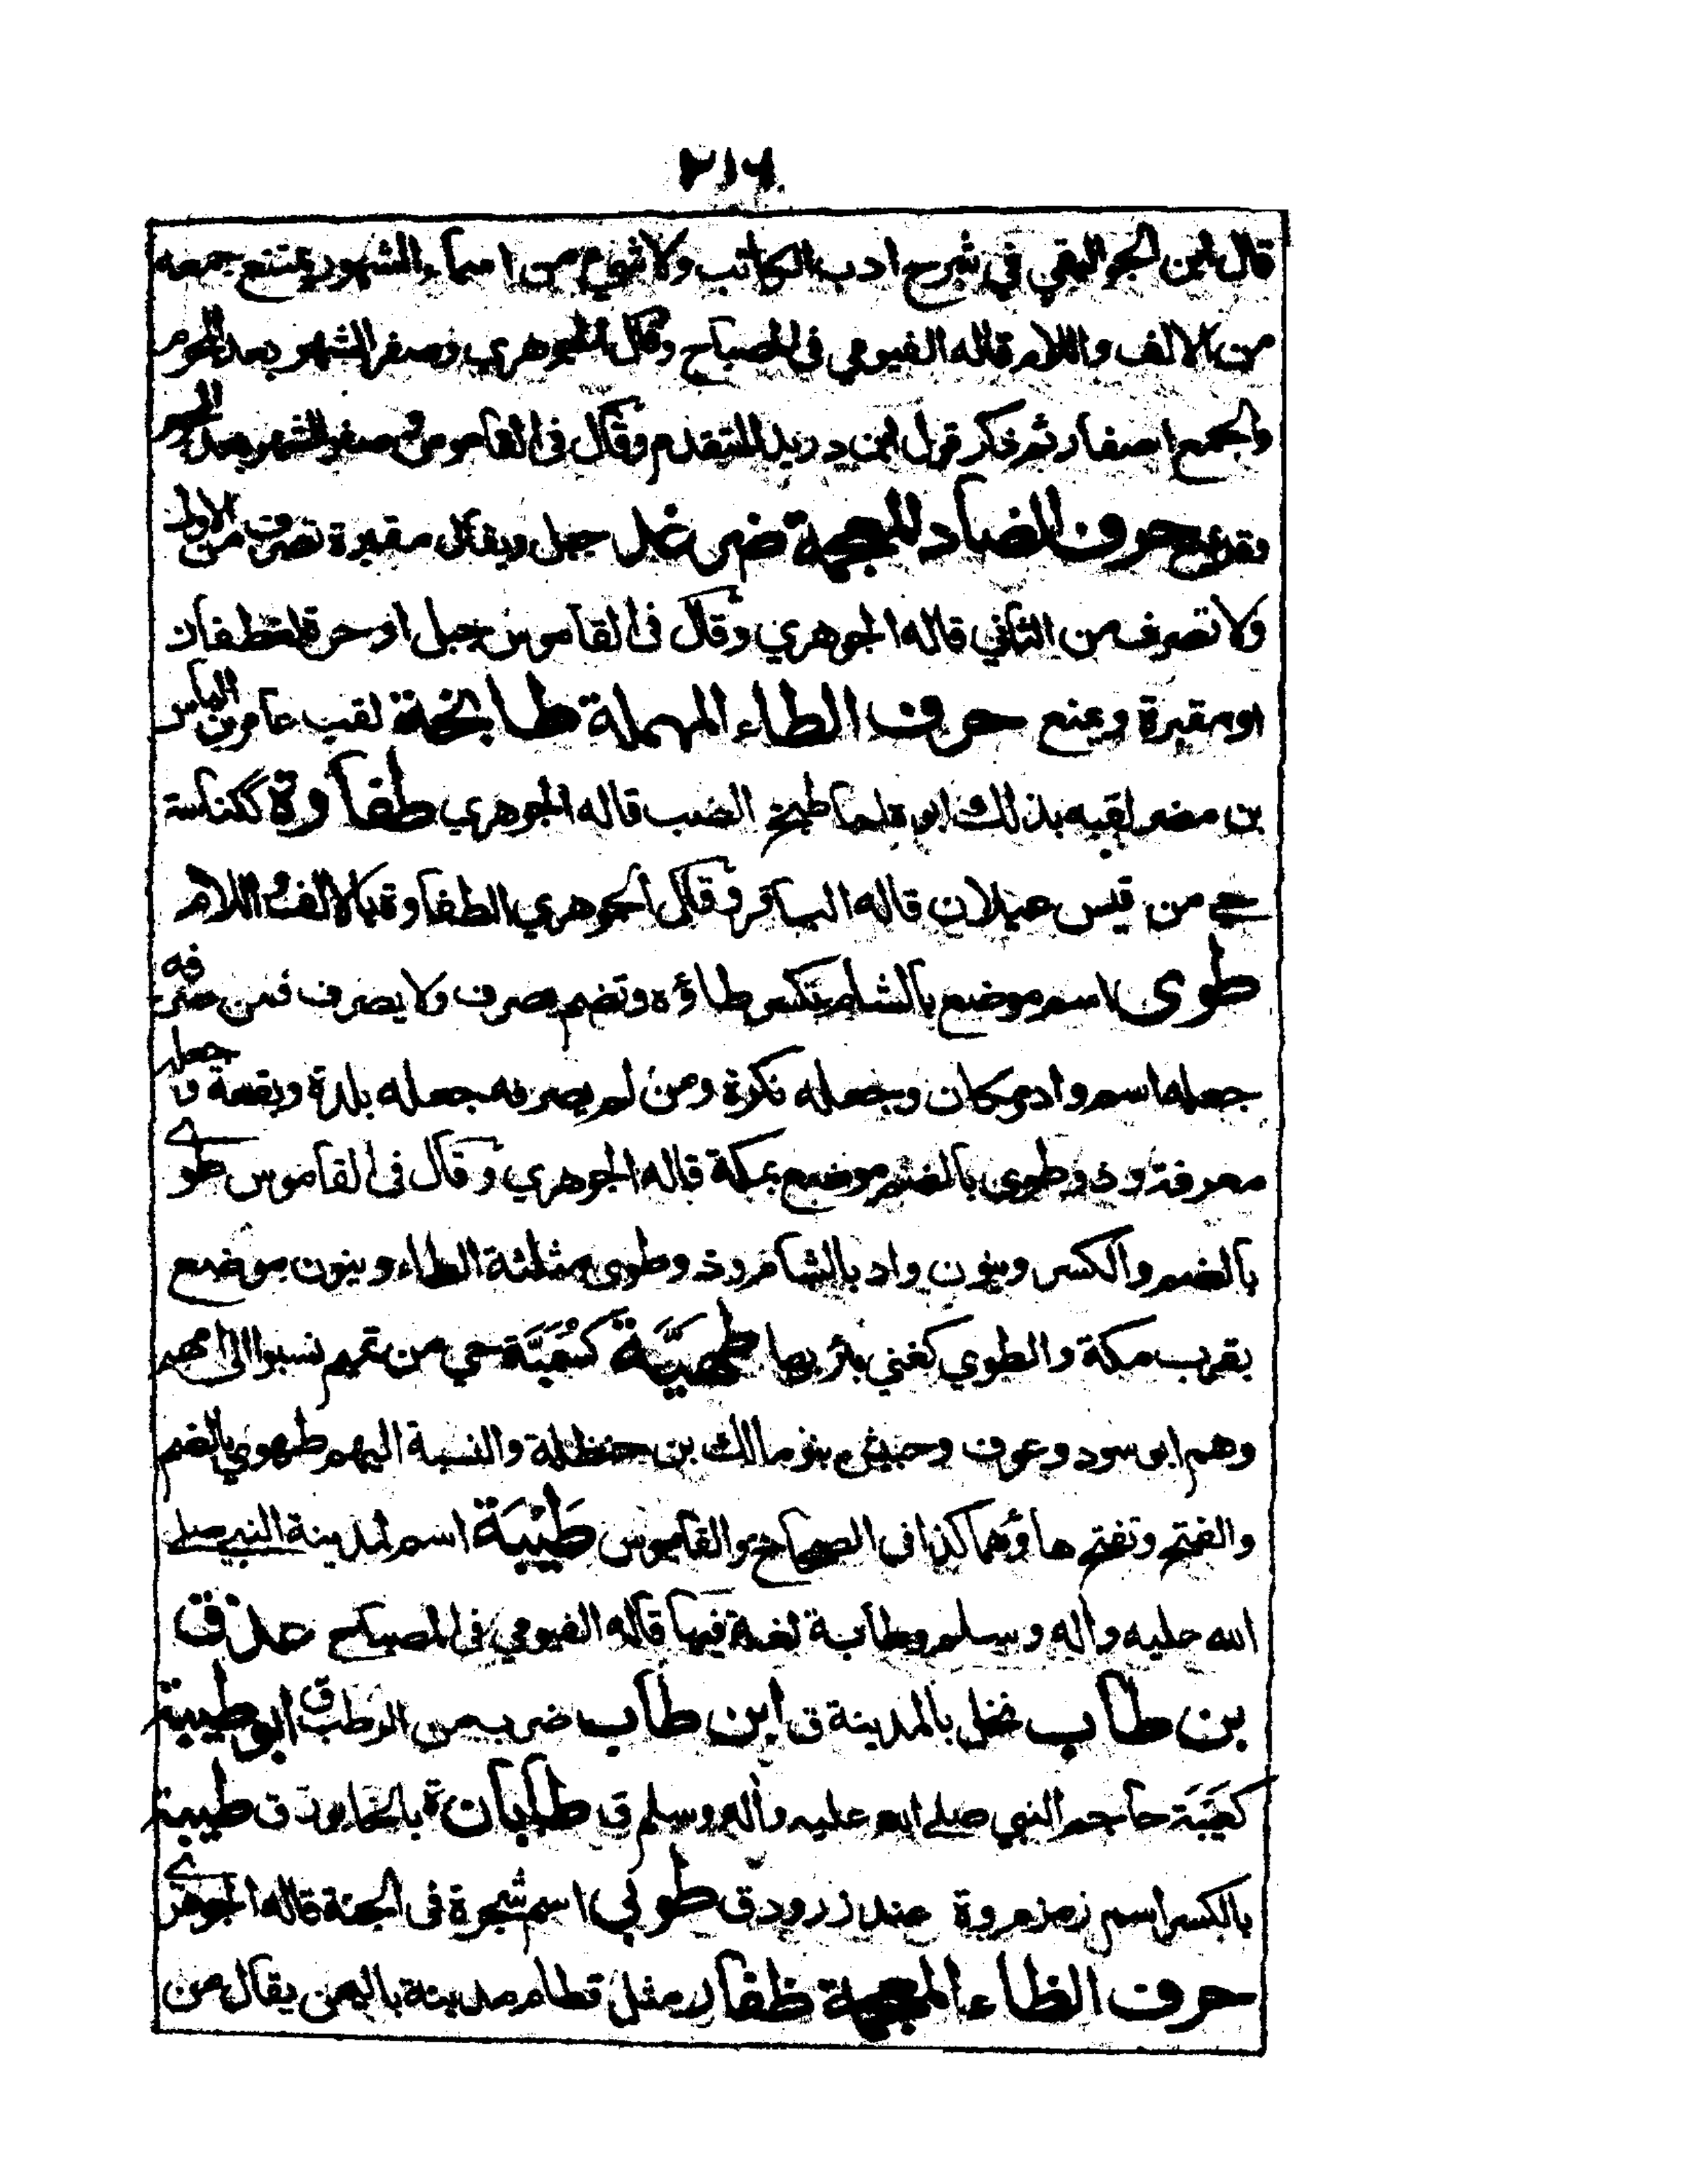 ٢١٦
قال ابن الجواليقي في شرح ادب الكاتب ولا شيء من اسماء الشهور يمتنع جمعه
من الالف واللام قاله الفيومي في المصباح وقال الجوهري وصفر الشهر بعد المحرم
والجمع اصفار ثم ذكر قول ابن دريد المتقدم وقال في القاموس صفر الشهر بعد المحرم
وقد يمنع حرف الضاد المعجمة ضرغد جبل ويقال مقبرة تصرف من الاول
ولا تصرف من الثاني قاله الجوهري وقال في القاموس جبل او حرة لغطفان
او مقبرة ويمنع حرف الطاء المهملة طابخة لقب عامر بن الياس
بن مضر لقبه بذلك ابوه لما طبخ الضب قاله الجوهري طفاوة ككناسة
حي من قيس عيلان قاله الباقر وقال الجوهري الطفاوة بالالف واللام
طوى اسم موضع بالشام تكسر طاؤه وتضم يصرف ولا يصرف فمن صرفه
جعله اسم واد ومكان وجعله نكرة ومن لم يصرفه جعله بلدة وبقعة وجعله
معرفة وذو طوى بالضم موضع بمكة قاله الجوهري وقال في القاموس طوى
بالضم والكسر وينون واد بالشام وذو طوى مثلثة الطاء وينون موضع
بقرب مكة والطوي كغني بئر بها طهية كسمية حي من تميم نسبوا الى امهم
وهم ابو سود وعوف وحبيش بنو مالك بن حنظلة والنسبة اليهم طهوي بالضم
والفتح وتفتح هاؤهما كذا في الصحاح والقاموس طَيْبَة اسم لمدينة النبي صلى
الله عليه واله وسلم وطابة لغة فيها قاله الفيومي في المصباح عذق
بن طاب نخل بالمدينة ق ابن طاب ضرب من الرطب ق ابو طيبة
كعيبة حاجم النبي صلى الله عليه واله وسلم ق طابان ة بالخابور ق طيبة
بالكسر اسم زمزم وة عند زرود ق طوبى اسم شجرة في الجنة قاله الجوهري
حرف الظاء المعجمة ظفار مثل قطام مدينة باليمن يقال من